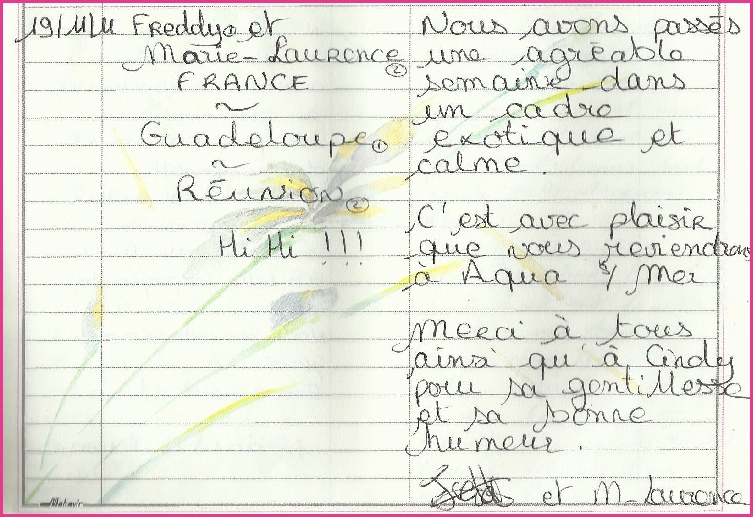 19/11/11 Freddy① et
Marie-Laurence②
FRANCE
~
Guadeloupe①
~
Réunion②
Hi Hi !!!
Nous avons passés
une agréable
semaine dans
un cadre
exotique et
calme.
C'est avec plaisir
que nous reviendrons
à Aqua s/ Mer
Merci à tous
ainsi qu'à Cindy
pour sa gentillesse
et sa bonne
humeur.
et M-Laurence